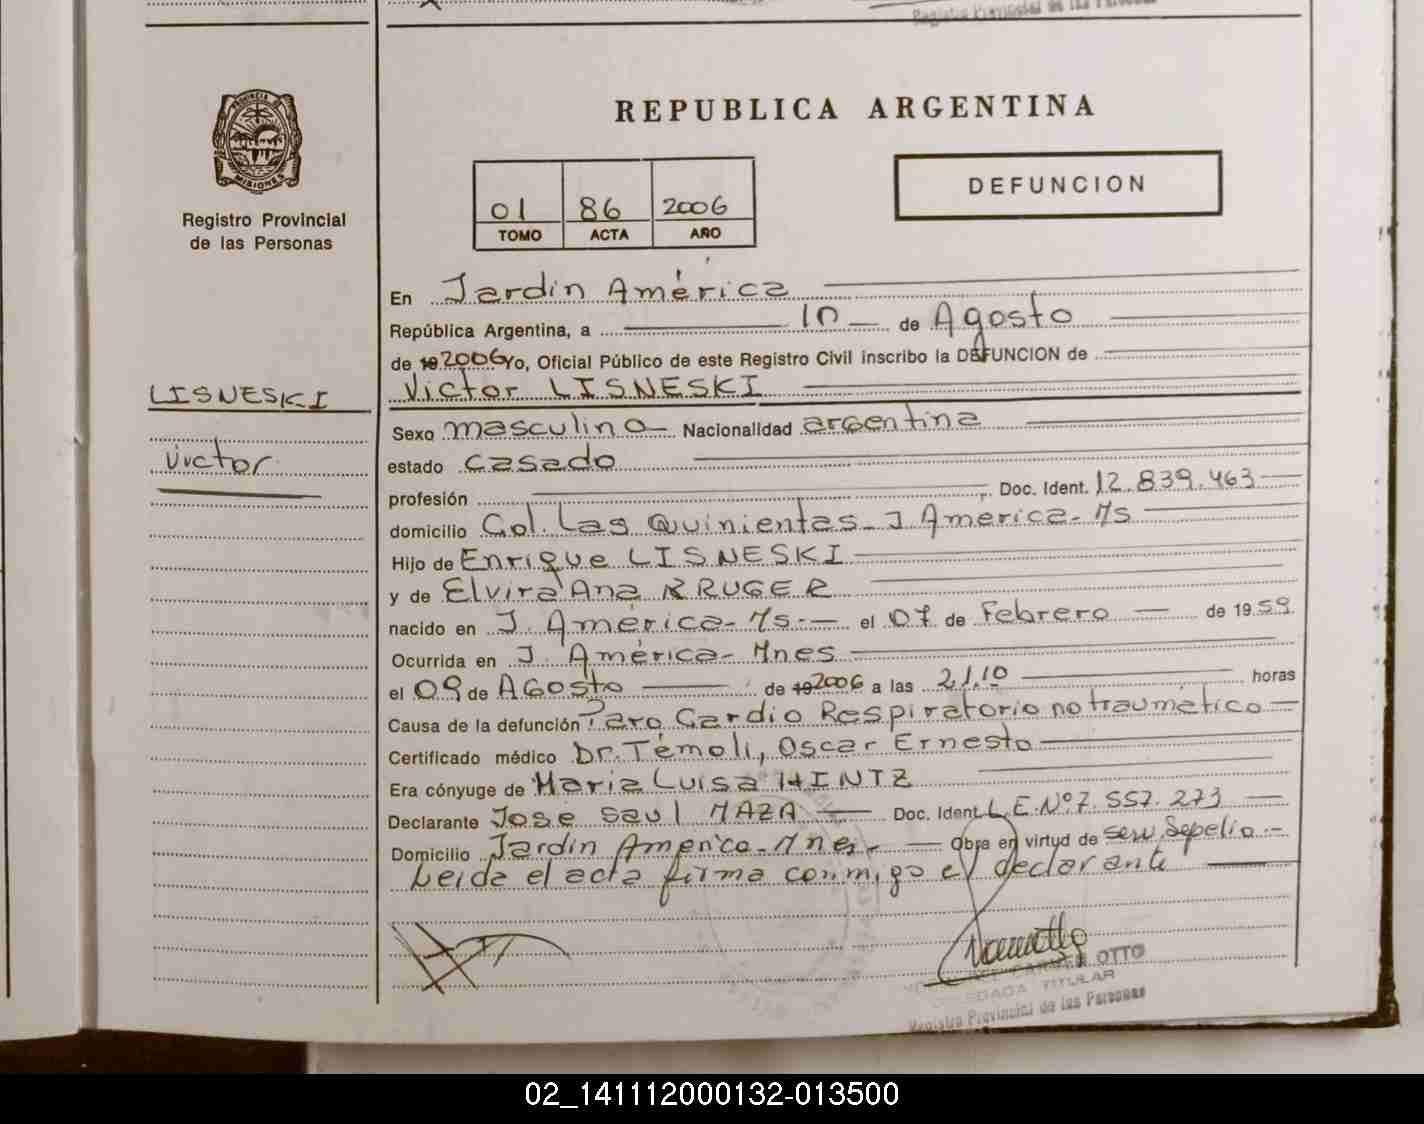 Registro Provincial de las Personas
PROVINCIA DE
MISIONES
Registro Provincial
de las Personas
REPUBLICA ARGENTINA
DEFUNCION
01 86 2006
TOMO ACTA AÑO
En Jardín América
República Argentina, a 10 de Agosto
de 19 2006 Yo, Oficial Público de este Registro Civil inscribo la DEFUNCION de
Victor LISNESKI
LISNESKI
Victor
Sexo masculino Nacionalidad argentina
estado casado
profesión Doc. Ident. 12.839.463
domicilio Col. Las Quinientas - J. America - Ms
Hijo de Enrique LISNESKI
y de Elvira Ana KRUGER
nacido en J. América - Ms. - el 07 de Febrero - de 19 59
Ocurrida en J. América - Mnes
el 09 de Agosto de 19 2006 a las 21.10 horas
Causa de la defunción Paro Cardio Respiratorio no traumático
Certificado médico Dr. Témoli, Oscar Ernesto
Era cónyuge de Maria Luisa HINTZ
Declarante Jose Saul MAZA Doc. Ident. L.E. Nº 7.557.273
Domicilio Jardin America - Mnes - Obra en virtud de serv. Sepelio. -
Leida el acta firma conmigo el declarante
OTTO
TITULAR
Registro Provincial de las Personas
02_141112000132-013500